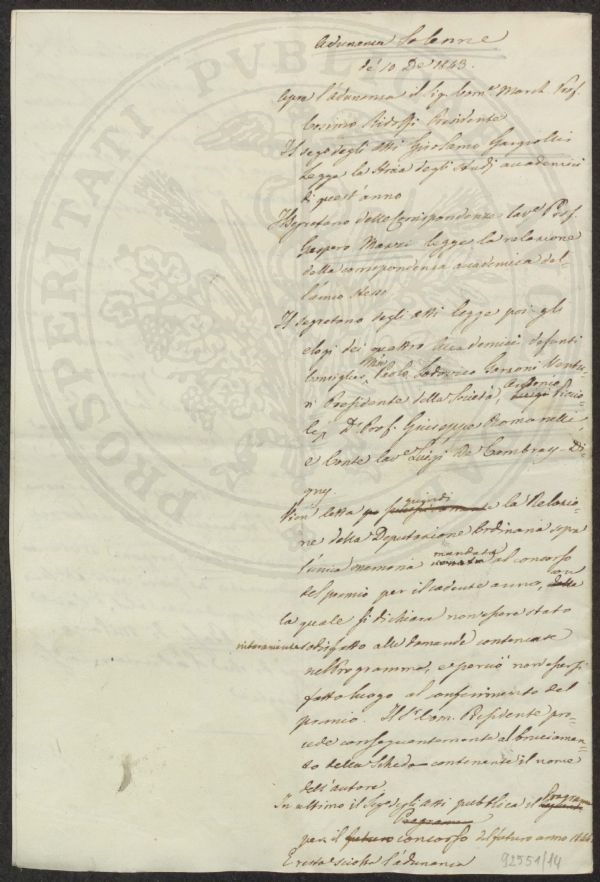 Adunanza Solenne
de' 10. De 1843.
Apre l'adunanza il Sig. Com. March. Prof.
Cosimo Ridolfi Presidente
Il seg. degli Atti Girolamo Gargiolli
legge la Storia degli Studj accademici
di quest'anno
Il Segretario delle Corrispondenze Cav. Prof.
Gaspero Mazzi legge la relazione
della corrispondenza accademica del-
l'anno stesso
Il segretario degli Atti legge poi gli
elogi dei quattro Accademici defunti
Consigliere Paolo Lodovico Garzoni Ventu-
ri Presidente della Società, Antonio
Dr. Prof. Giuseppe Romanelli
e Conte Cav. Luigi De Cambray-Di-
gny.
Vien letta quindi la Relazio-
ne della Deputazione Ordinaria sopra
l'unica memoria mandata al concorso
del premio per il cadente anno, con
la quale si dichiara non essere stato
interamente sodisfatto alle domande contenute
nel Programma, e perciò non essersi
fatto luogo al conferimento del
premio. Il Sr. Com. Presidente pro-
cede conseguentemente al bruciamen-
to della Scheda contenente il nome
dell'autore
In ultimo il Seg. degli Atti pubblica il Programma
per il concorso del futuro anno 1844
E resta sciolta l'adunanza
92551/14
PROSPERITATI PUBLICAE